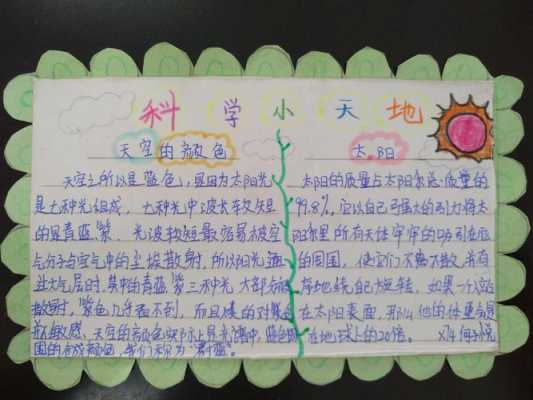 科学小天地
天空的颜色
天空之所以是蓝色,是因为太阳光
是七种光组成,七种光中波长较短
的是青蓝紫,光波较短最容易被空
气分子与空气中的尘埃散射,所以阳光通
过大气层时,其中的青蓝紫三种光大部分被
散射,紫色几乎看不到,而且
敏感,天空的颜色实际上是光谱中蓝色
的合成颜色,我们称为"蔚蓝"。
太阳
太阳的质量占太阳系总质量的
99.8%,它以自己强大的引力将太
阳系里所有天体牢牢的吸引在它
的周围,使它们不离不散,井然有
序地绕自己旋转,如果一个人站
在太阳表面,那么他的体重会是
在地球上的20倍。